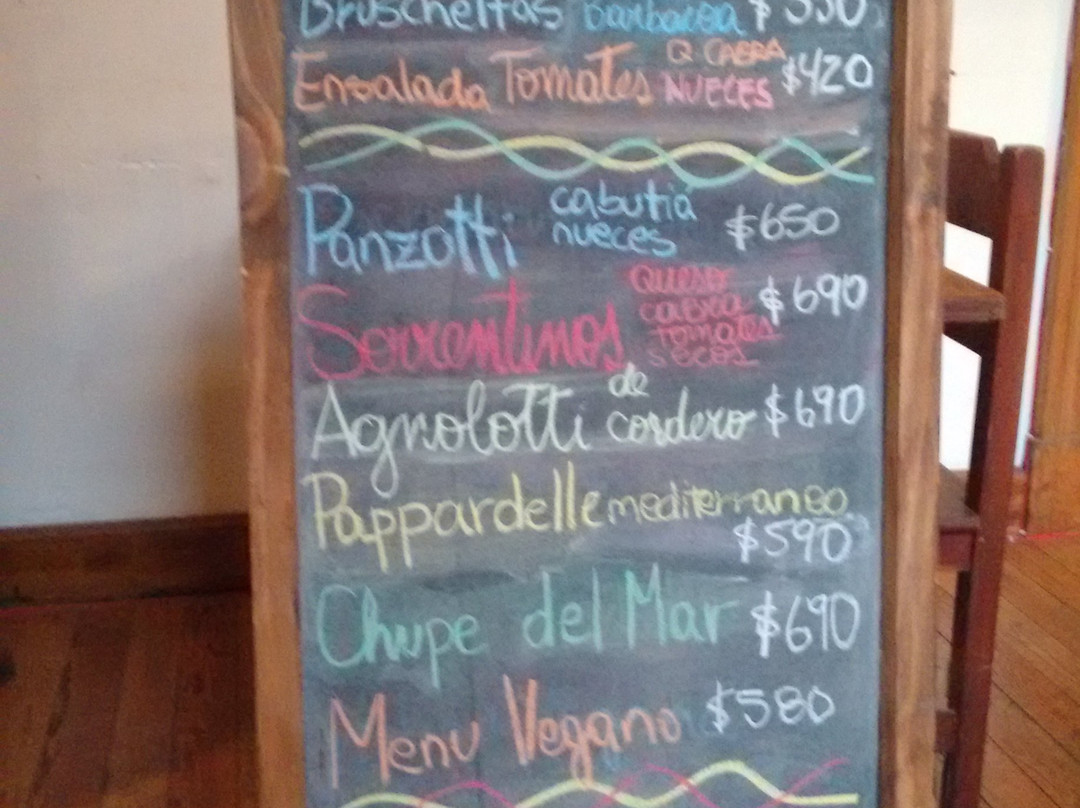 Bruschettas Barbacoa $
Ensalada Tomates Q CABRA NUECES $420
Panzotti cabutiá nueces $650
Sorrentinos queso cabra tomates secos $690
Agnolotti de cordero $690
Pappardelle mediterraneo
$590
Chupe del Mar $690
Menu Vegano $580